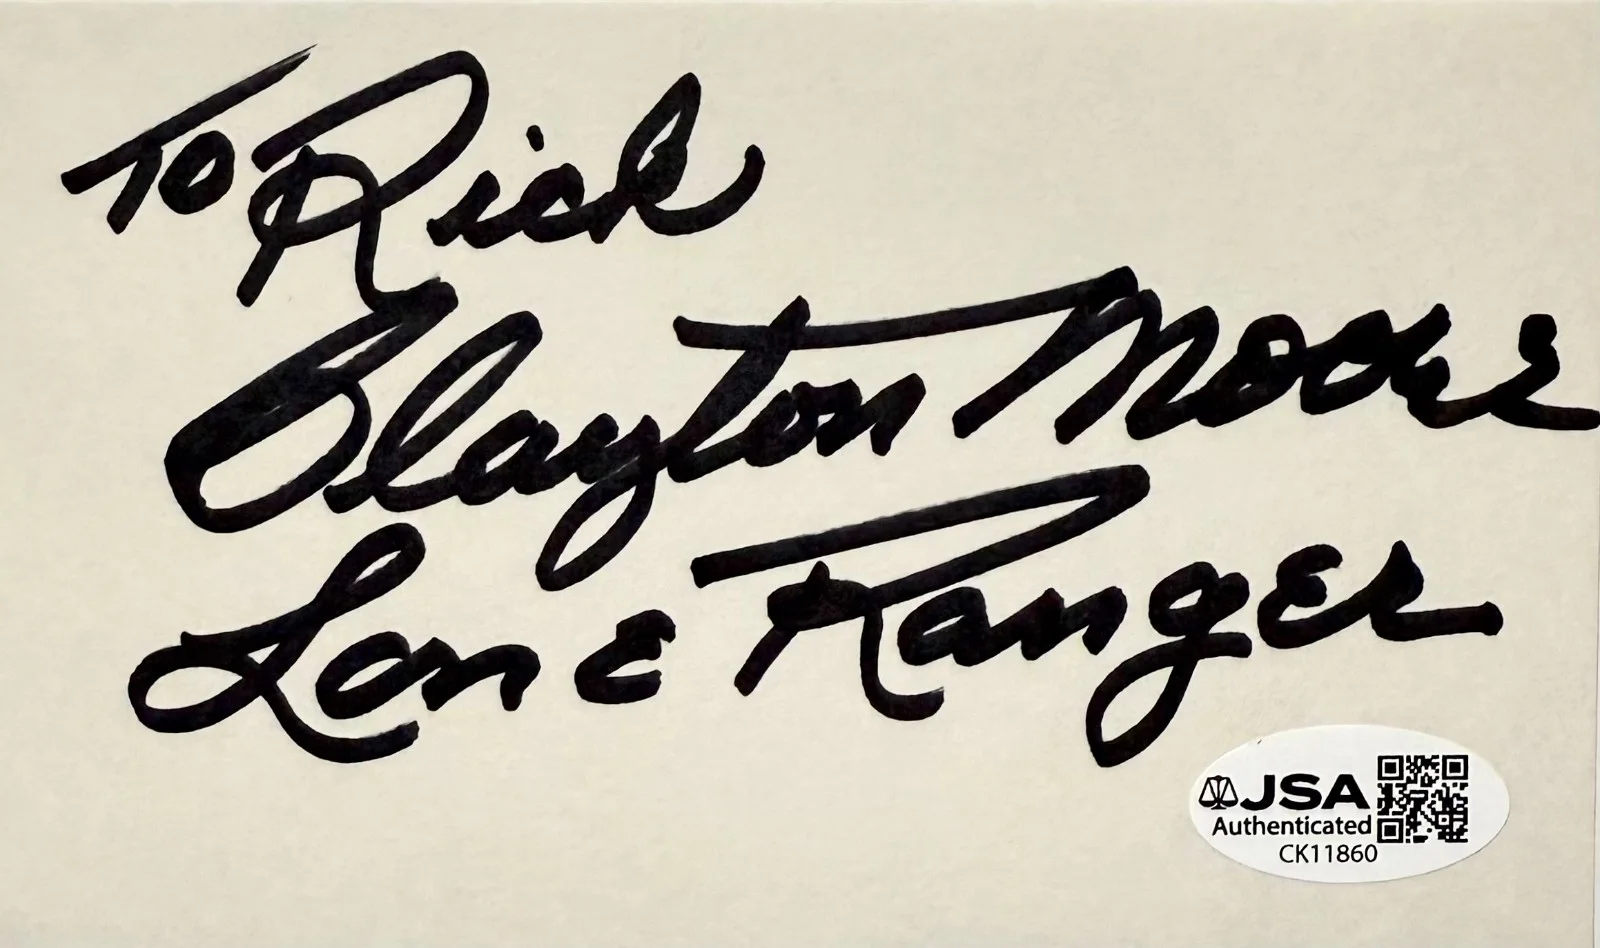 To Rick
Clayton Moore
Lone Ranger
JSA
Authenticated
CK11860